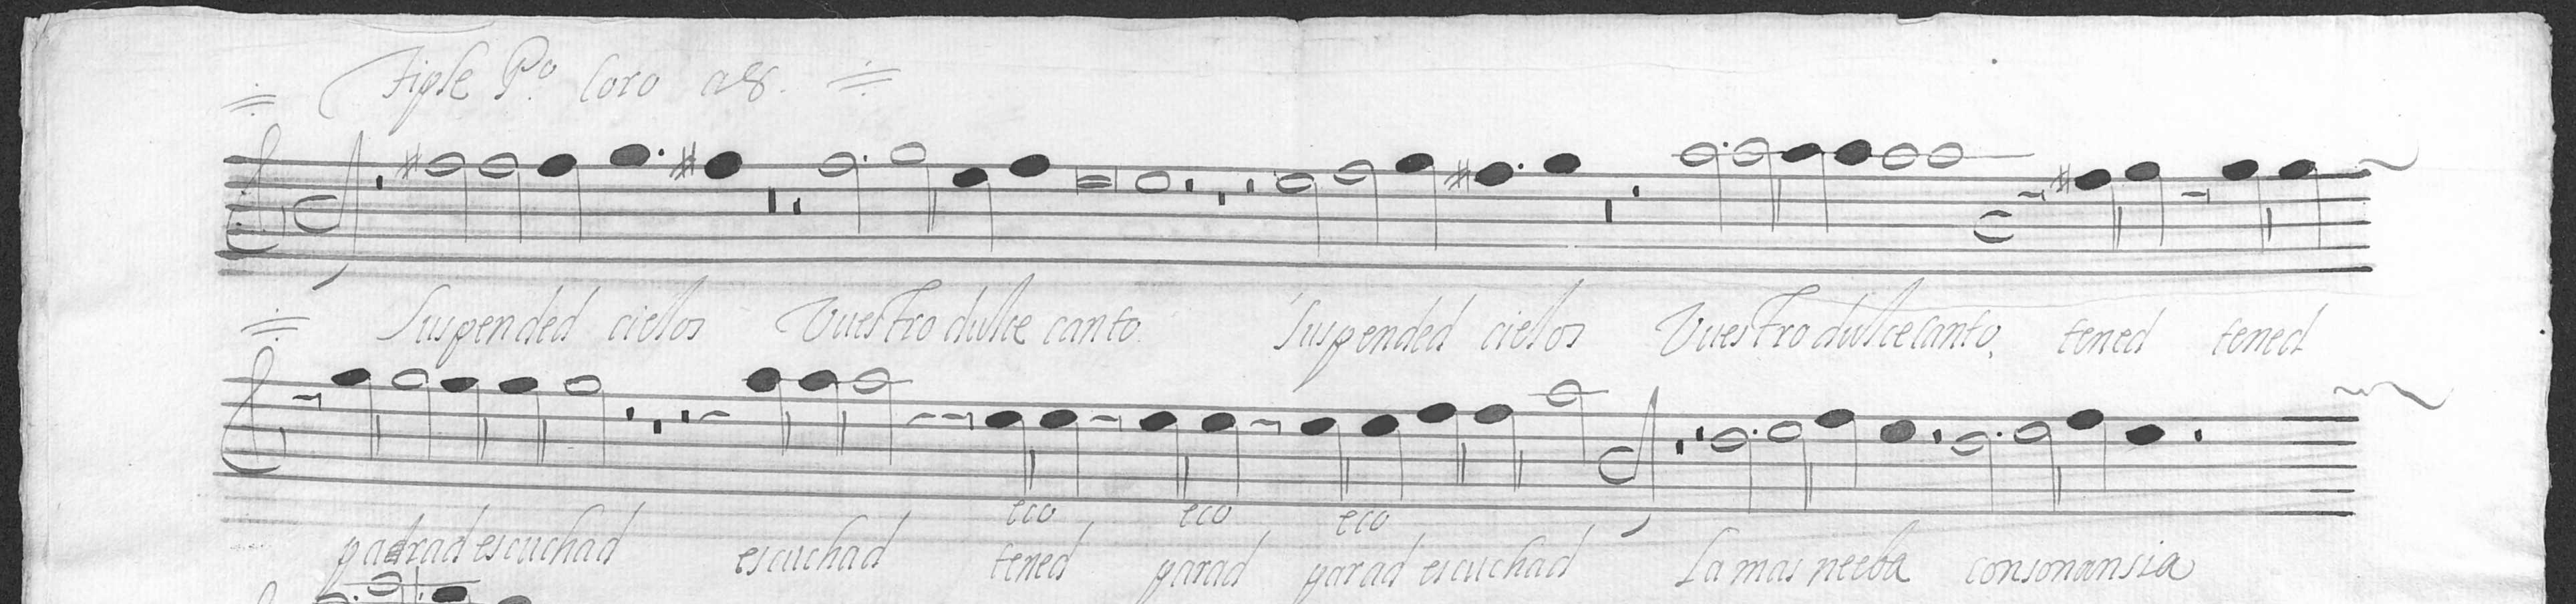 Tiple Pº Coro a 8.
Suspended cielos Vuestro dulce canto. Suspended cielos Vuestro dulce canto, tened tened
eco eco eco
parad escuchad escuchad tened parad parad escuchad La mas nueba consonansia